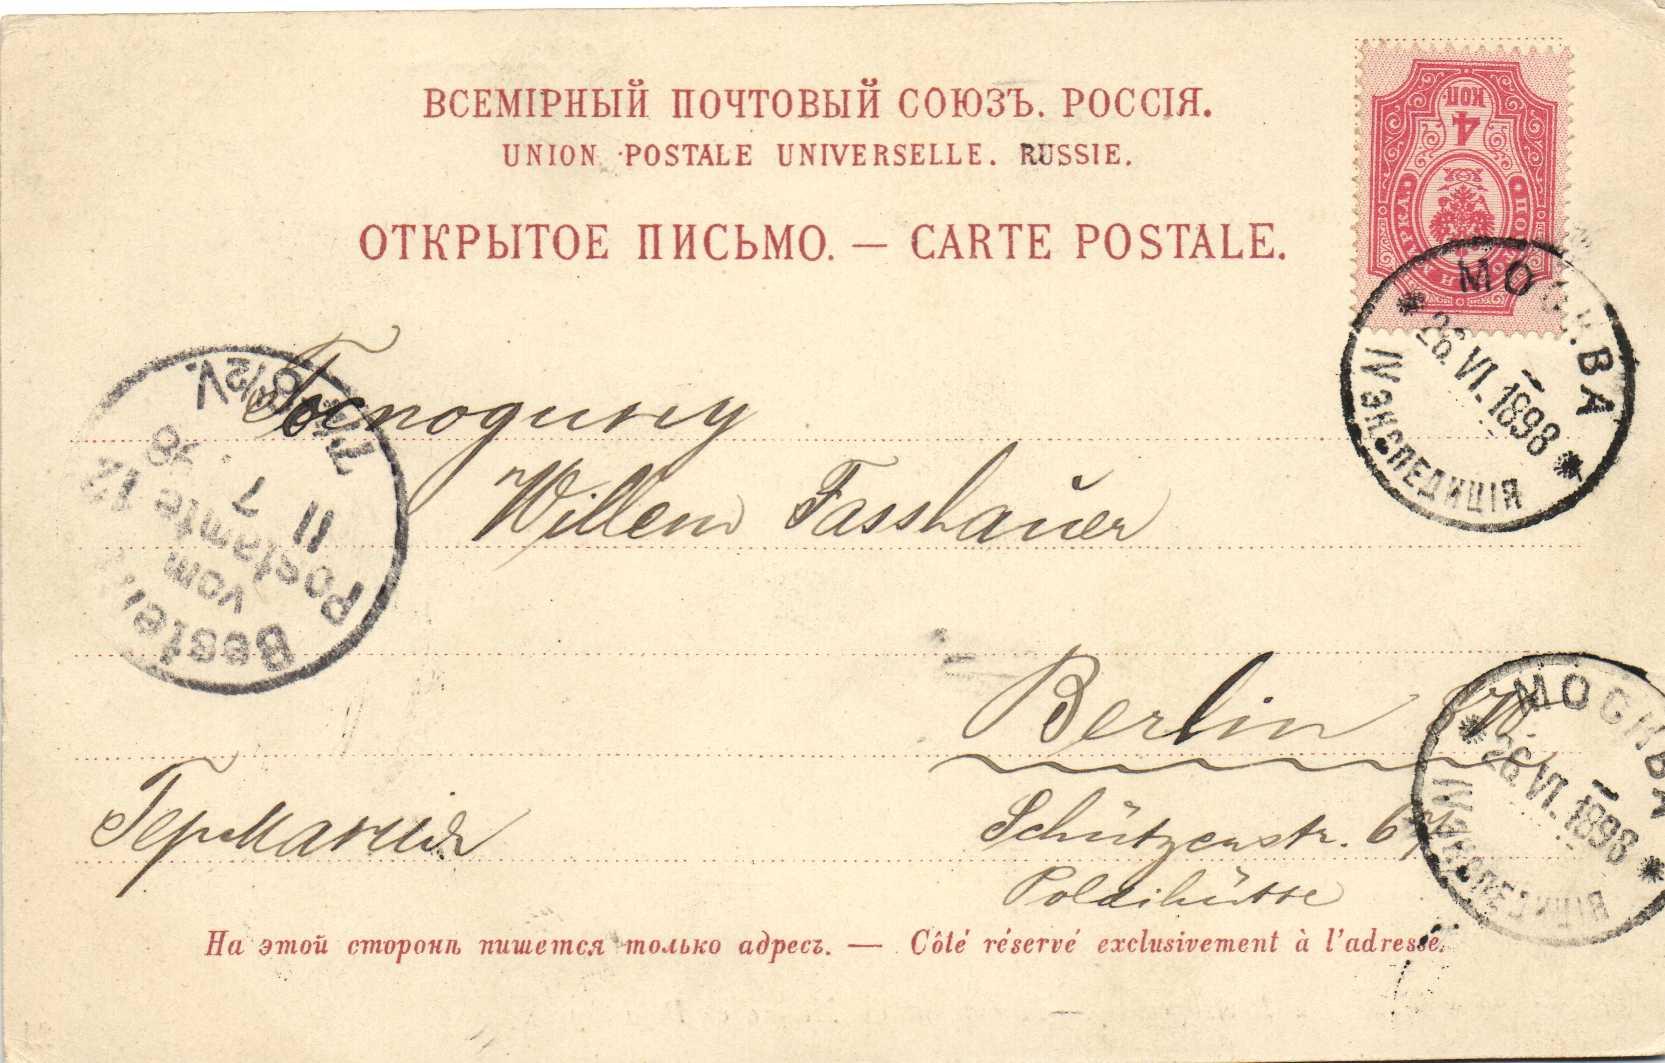 ВСЕМІРНЫЙ ПОЧТОВЫЙ СОЮЗЪ. РОССІЯ.
UNION POSTALE UNIVERSELLE. RUSSIE.
ОТКРЫТОЕ ПИСЬМО. — CARTE POSTALE.
4
КОП
МОСКВА
26.VI.1898
IV ЭКСПЕДИЦІЯ
Господину
Willem Fasshauer
Bestellt
vom
Postamte 12
11 7 98
7¼-8½V.
Berlin W.
Schützenstr. 67
Poldihütte
Германия
МОСКВА
26.VI.1898
IV ЭКСПЕДИЦІЯ
На этой сторонѣ пишется только адресъ. — Côté réservé exclusivement à l'adresse.